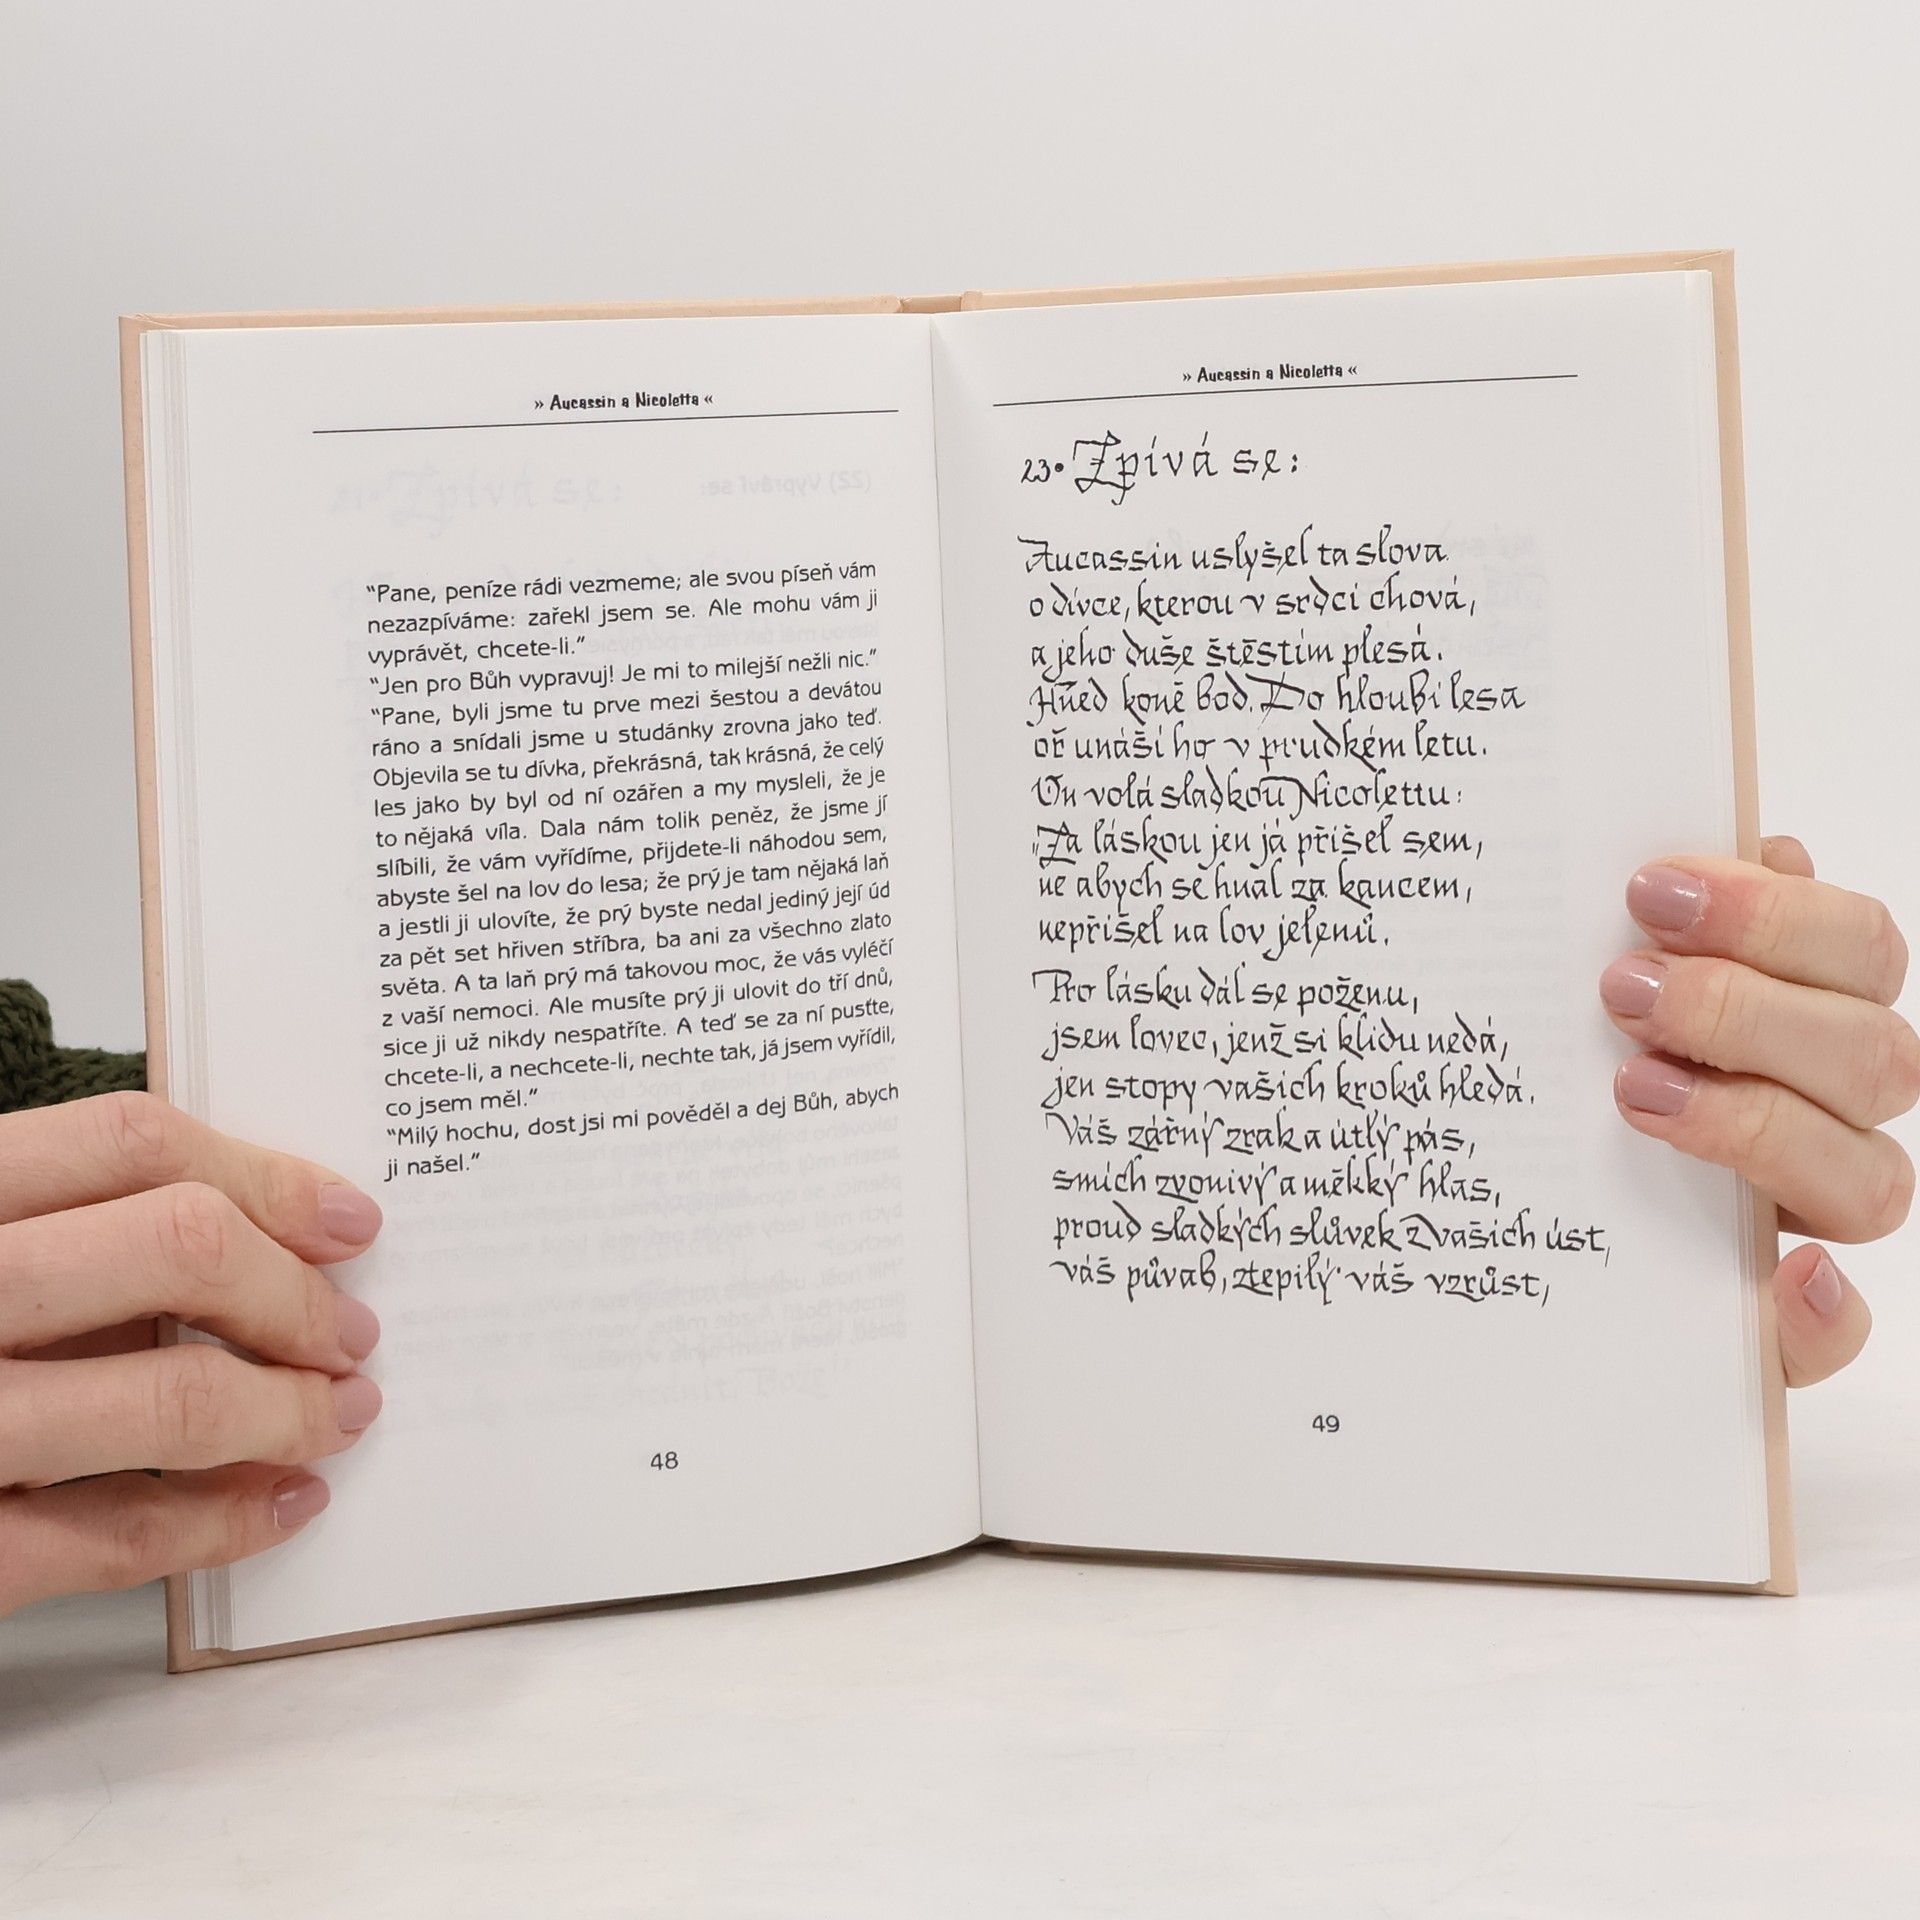 » Aucassin a Nicoletta «
“Pane, peníze rádi vezmeme; ale svou píseň vám
nezazpíváme: zařekl jsem se. Ale mohu vám ji
vyprávět, chcete-li.”
“Jen pro Bůh vypravuj! Je mi to milejší nežli nic.”
“Pane, byli jsme tu prve mezi šestou a devátou
ráno a snídali jsme u studánky zrovna jako teď.
Objevila se tu dívka, překrásná, tak krásná, že celý
les jako by byl od ní ozářen a my mysleli, že je
to nějaká víla. Dala nám tolik peněz, že jsme jí
slíbili, že vám vyřídíme, přijdete-li náhodou sem,
abyste šel na lov do lesa; že prý je tam nějaká laň
a jestli ji ulovíte, že prý byste nedal jediný její úd
za pět set hřiven stříbra, ba ani za všechno zlato
světa. A ta laň prý má takovou moc, že vás vyléčí
z vaší nemoci. Ale musíte prý ji ulovit do tří dnů,
sice ji už nikdy nespatříte. A teď se za ní pusťte,
chcete-li, a nechcete-li, nechte tak, já jsem vyřídil,
co jsem měl.”
“Milý hochu, dost jsi mi pověděl a dej Bůh, abych
ji našel.”
48
» Aucassin a Nicoletta «
23. Zpívá se:
Aucassin uslyšel ta slova
o dívce, kterou v srdci chová,
a jeho duše štěstím plesá.
Hned koně bod. Do hloubi lesa
oř unáší ho v prudkém letu.
On volá sladkou Nicolettu:
„Za láskou jen já přišel sem,
ne abych se hnal za kancem,
nepřišel na lov jelenů.
Pro lásku dál se poženu,
jsem lovec, jenž si klidu nedá,
jen stopy vašich kroků hledá.
Váš zářný zrak a útlý pás,
smích zvonivý a měkký hlas,
proud sladkých slůvek z vašich úst,
váš půvab, ztepilý váš vzrůst,
49